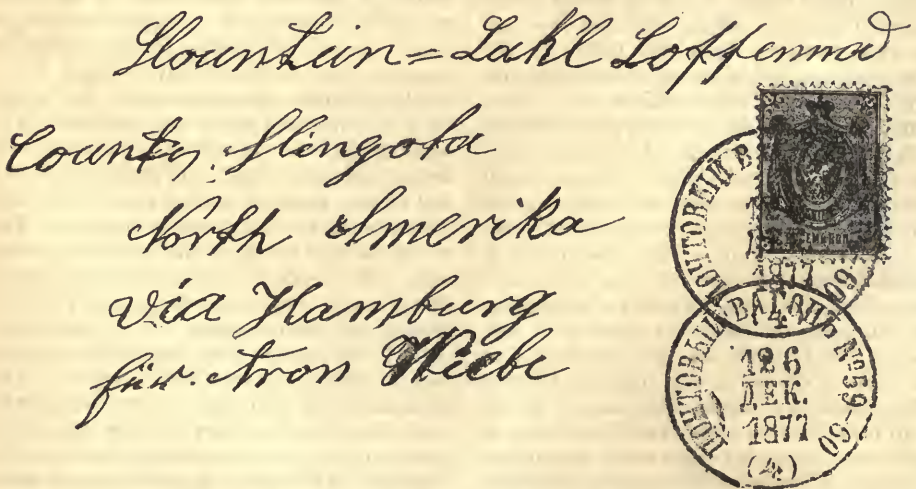 Mountein=Lakl Loffennad
County, Mingota
North Amerika
via Hamburg
für. Aron Wiebe
ПОЧТОВЫЙ В
1877
09
ПОЧТОВЫЙ ВАГОНЪ №59-60
126
ДЕК.
1877
(4)